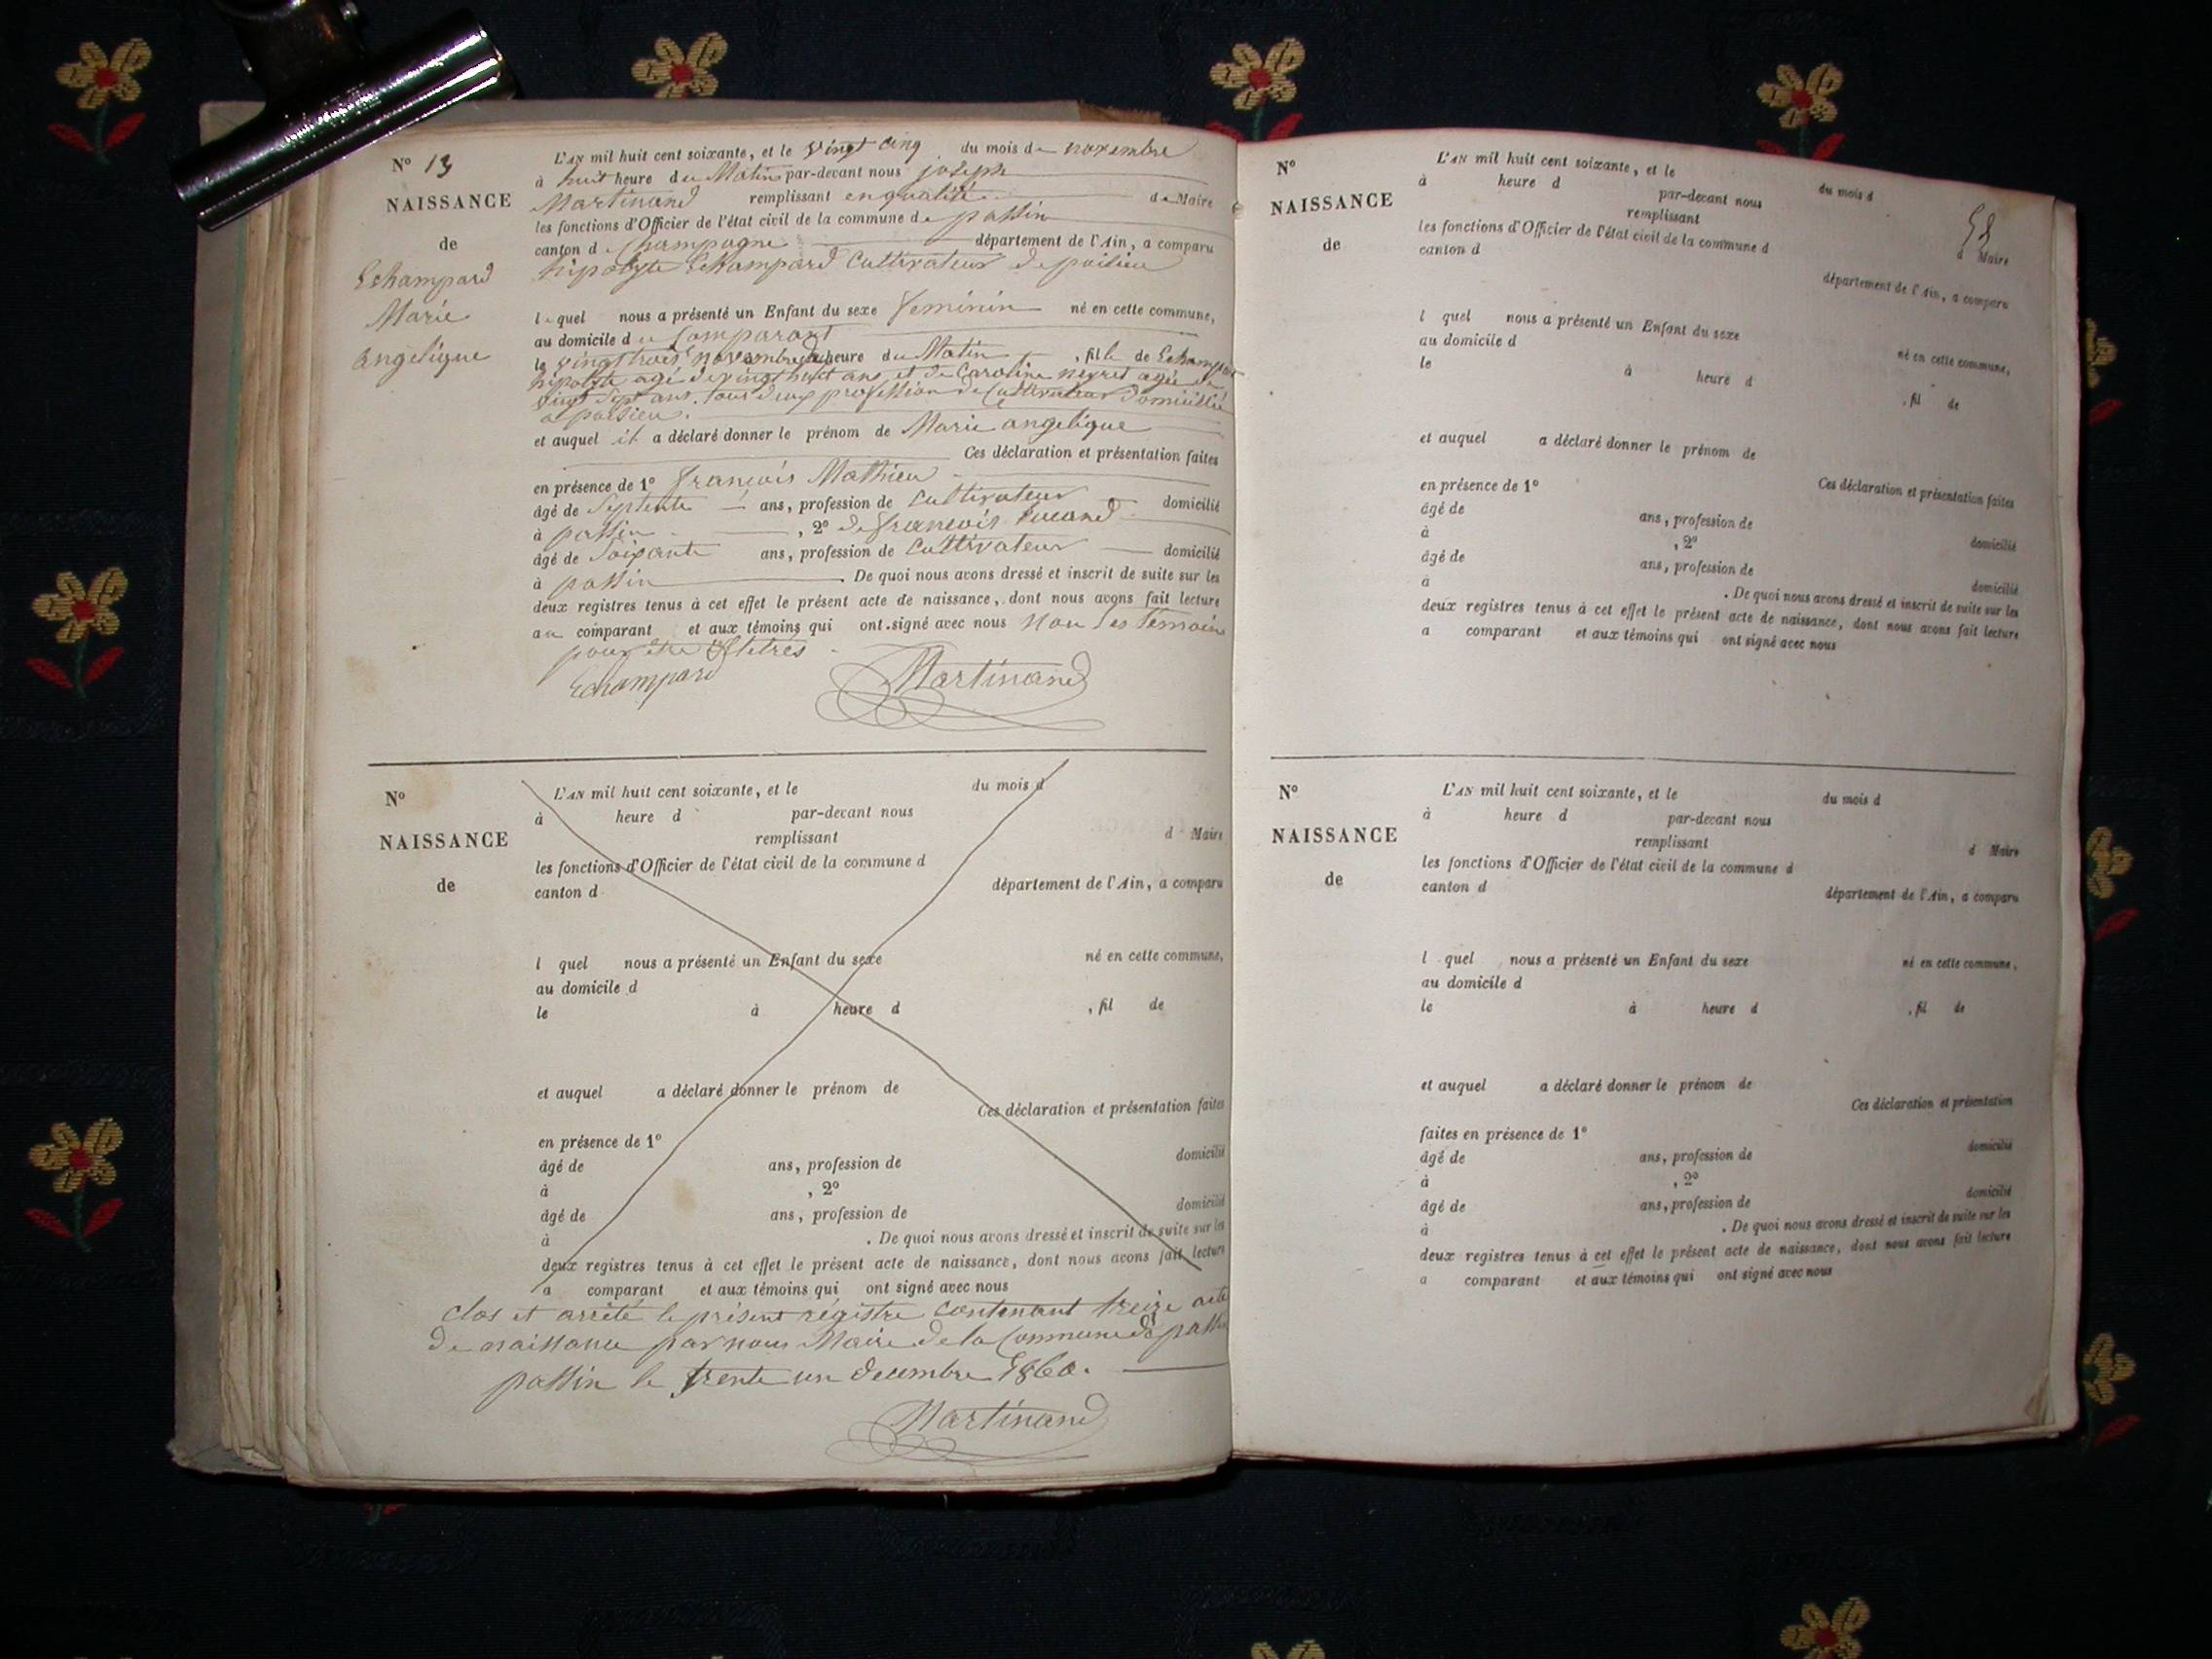 N° 13
NAISSANCE
de
Echampard
Marie
angelique
L'AN mil huit cent soixante, et le vingt cinq du mois de novembre
à huit heure du Matin par-devant nous joseph
Martinand remplissant en qualité de Maire
les fonctions d'Officier de l'état civil de la commune de passin
canton de Champagne département de l'Ain, a comparu
hipolyte Echampard Cultivateur de poisieu
lequel nous a présenté un Enfant du sexe feminin né en cette commune,
au domicile du Comparant
le vingt trois novembre heure du Matin, fille de Echampard
hipolyte agé de vingt huit ans et de Caroline neyret agée de
vingt sept ans, tous deux profession de Cultivateur Domicilié
a poisieu.
et auquel il a déclaré donner le prénom de Marie angelique
Ces déclaration et présentation faites
en présence de 1° francois Mathieu
âgé de Septente ans, profession de Cultivateur domicilié
à passin, 2° de francois
âgé de Soixante ans, profession de Cultivateur domicilié
à passin. De quoi nous avons dressé et inscrit de suite sur les
deux registres tenus à cet effet le présent acte de naissance, dont nous avons fait lecture
au comparant et aux témoins qui ont signé avec nous Non les temoins
pour être illetrés
Echampard Martinand
N°
NAISSANCE
de
L'AN mil huit cent soixante, et le du mois d
à heure d par-devant nous
remplissant d Maire
les fonctions d'Officier de l'état civil de la commune d
canton d département de l'Ain, a comparu
l quel nous a présenté un Enfant du sexe né en cette commune,
au domicile d
le à heure d , fil de
et auquel a déclaré donner le prénom de
Ces déclaration et présentation faites
en présence de 1°
âgé de ans, profession de domicilié
à , 2°
âgé de ans, profession de domicilié
à . De quoi nous avons dressé et inscrit de suite sur les
deux registres tenus à cet effet le présent acte de naissance, dont nous avons fait lecture
a comparant et aux témoins qui ont signé avec nous
clos et arrêté le présent régistre contenant treize acte
De naissance par nous Maire de la Commune de passin
passin le trente un decembre 1860.
Martinand
N°
NAISSANCE
de
L'AN mil huit cent soixante, et le du mois d
à heure d par-devant nous
remplissant d Maire
les fonctions d'Officier de l'état civil de la commune d
canton d département de l'Ain, a comparu
l quel nous a présenté un Enfant du sexe né en cette commune,
au domicile d
le à heure d , fil de
et auquel a déclaré donner le prénom de
Ces déclaration et présentation faites
en présence de 1°
âgé de ans, profession de domicilié
à , 2°
âgé de ans, profession de domicilié
à . De quoi nous avons dressé et inscrit de suite sur les
deux registres tenus à cet effet le présent acte de naissance, dont nous avons fait lecture
a comparant et aux témoins qui ont signé avec nous
N°
NAISSANCE
de
L'AN mil huit cent soixante, et le du mois d
à heure d par-devant nous
remplissant d Maire
les fonctions d'Officier de l'état civil de la commune d
canton d département de l'Ain, a comparu
l quel nous a présenté un Enfant du sexe né en cette commune,
au domicile d
le à heure d , fil de
et auquel a déclaré donner le prénom de
Ces déclaration et présentation
faites en présence de 1°
âgé de ans, profession de domicilié
à , 2°
âgé de ans, profession de domicilié
à . De quoi nous avons dressé et inscrit de suite sur les
deux registres tenus à cet effet le présent acte de naissance, dont nous avons fait lecture
a comparant et aux témoins qui ont signé avec nous